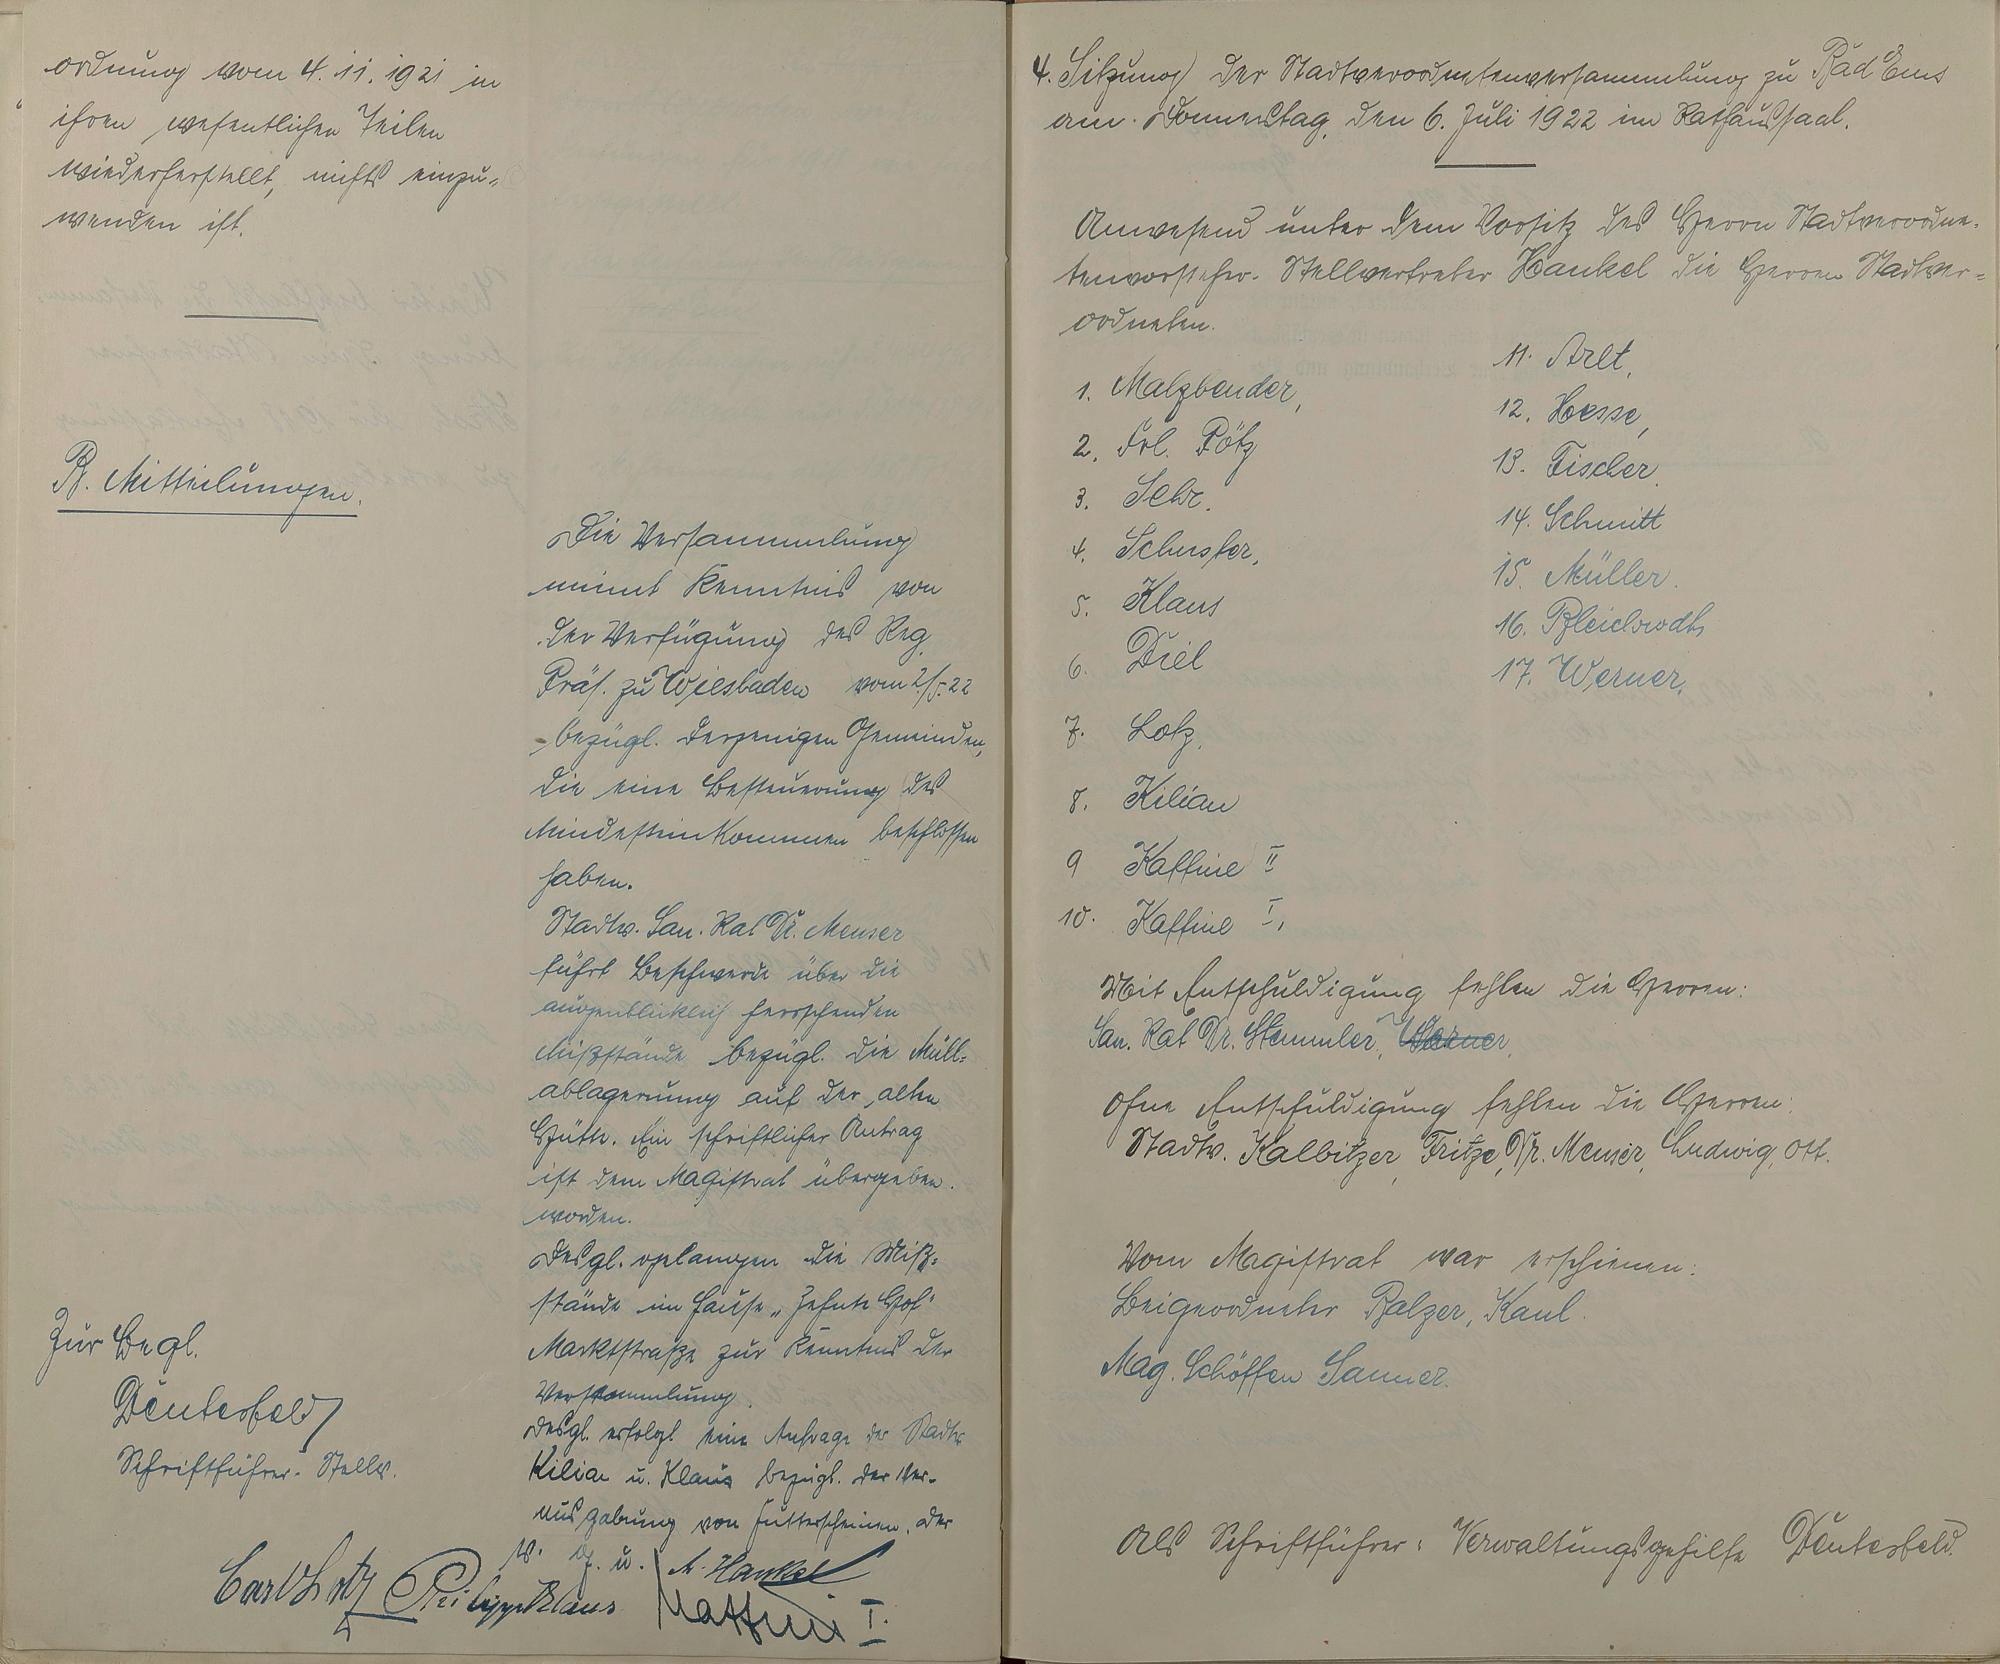 ordnung vom 4.11.1921 in
ihren wesentlichen Teilen
wiederherstellt, nichts einzu-
wenden ist.
B. Mitteilungen.
Die Versammlung
nimmt Kenntnis von
der Verfügung des Reg.
Präs. zu Wiesbaden vom 2/5.22
bezügl. derjenigen Gemeinden,
die eine Besteuerung des
Mindesteinkommen beschlossen
haben.
Stadtv. San. Rat Dr. Meuser
führt Beschwerde über die
augenblicklich herrschenden
Mißstände bezügl. die Müll-
ablagerung auf der alten
Hütte. Ein schriftlicher Antrag
ist dem Magistrat übergeben
worden.
Desgl. gelangen die Miß-
stände im Hause "Zehnte Hof"
Marktstraße zur Kenntnis der
Versammlung.
Desgl. erfolgt eine Anfrage der Stadtv
Kilian u. Klaus bezügl. der Ver-
ausgabung von Futterscheinen. der
v. g. u. A. Hankel
Zur Begl.
Deutesfeld
Schriftführer-Stellv.
Carl Lotz Philipp Klaus Kaffine I.
4. Sitzung der Stadtverordnetenversammlung zu Bad Ems
am Donnerstag, den 6. Juli 1922 im Rathaussaal.
Anwesend unter dem Vorsitz des Herrn Stadtverordne-
tenvorsteher-Stellvertreter Hankel die Herren Stadtver-
ordneten.
1. Malzbender,
2. Frl. Pötz
3. Sehr.
4. Schuster,
5. Klaus
6. Diel
7. Lotz,
8. Kilian
9 Kaffine II
10. Kaffine I,
11. Arlt,
12. Hesse,
13. Fischer.
14. Schmitt
15. Müller.
16. Bleichrodt,
17. Werner.
Mit Entschuldigung fehlen die Herren:
San. Rat Dr. Stemmler, Werner,
Ohne Entschuldigung fehlen die Herren:
Stadtv. Kalbitzer, Fritze, Dr. Meuser, Ludwig, Ott.
Vom Magistrat war erschienen:
Beigeordneter Balzer, Kaul.
Mag. Schöffen Sanner.
Als Schriftführer: Verwaltungsgehilfe Deutesfeld.